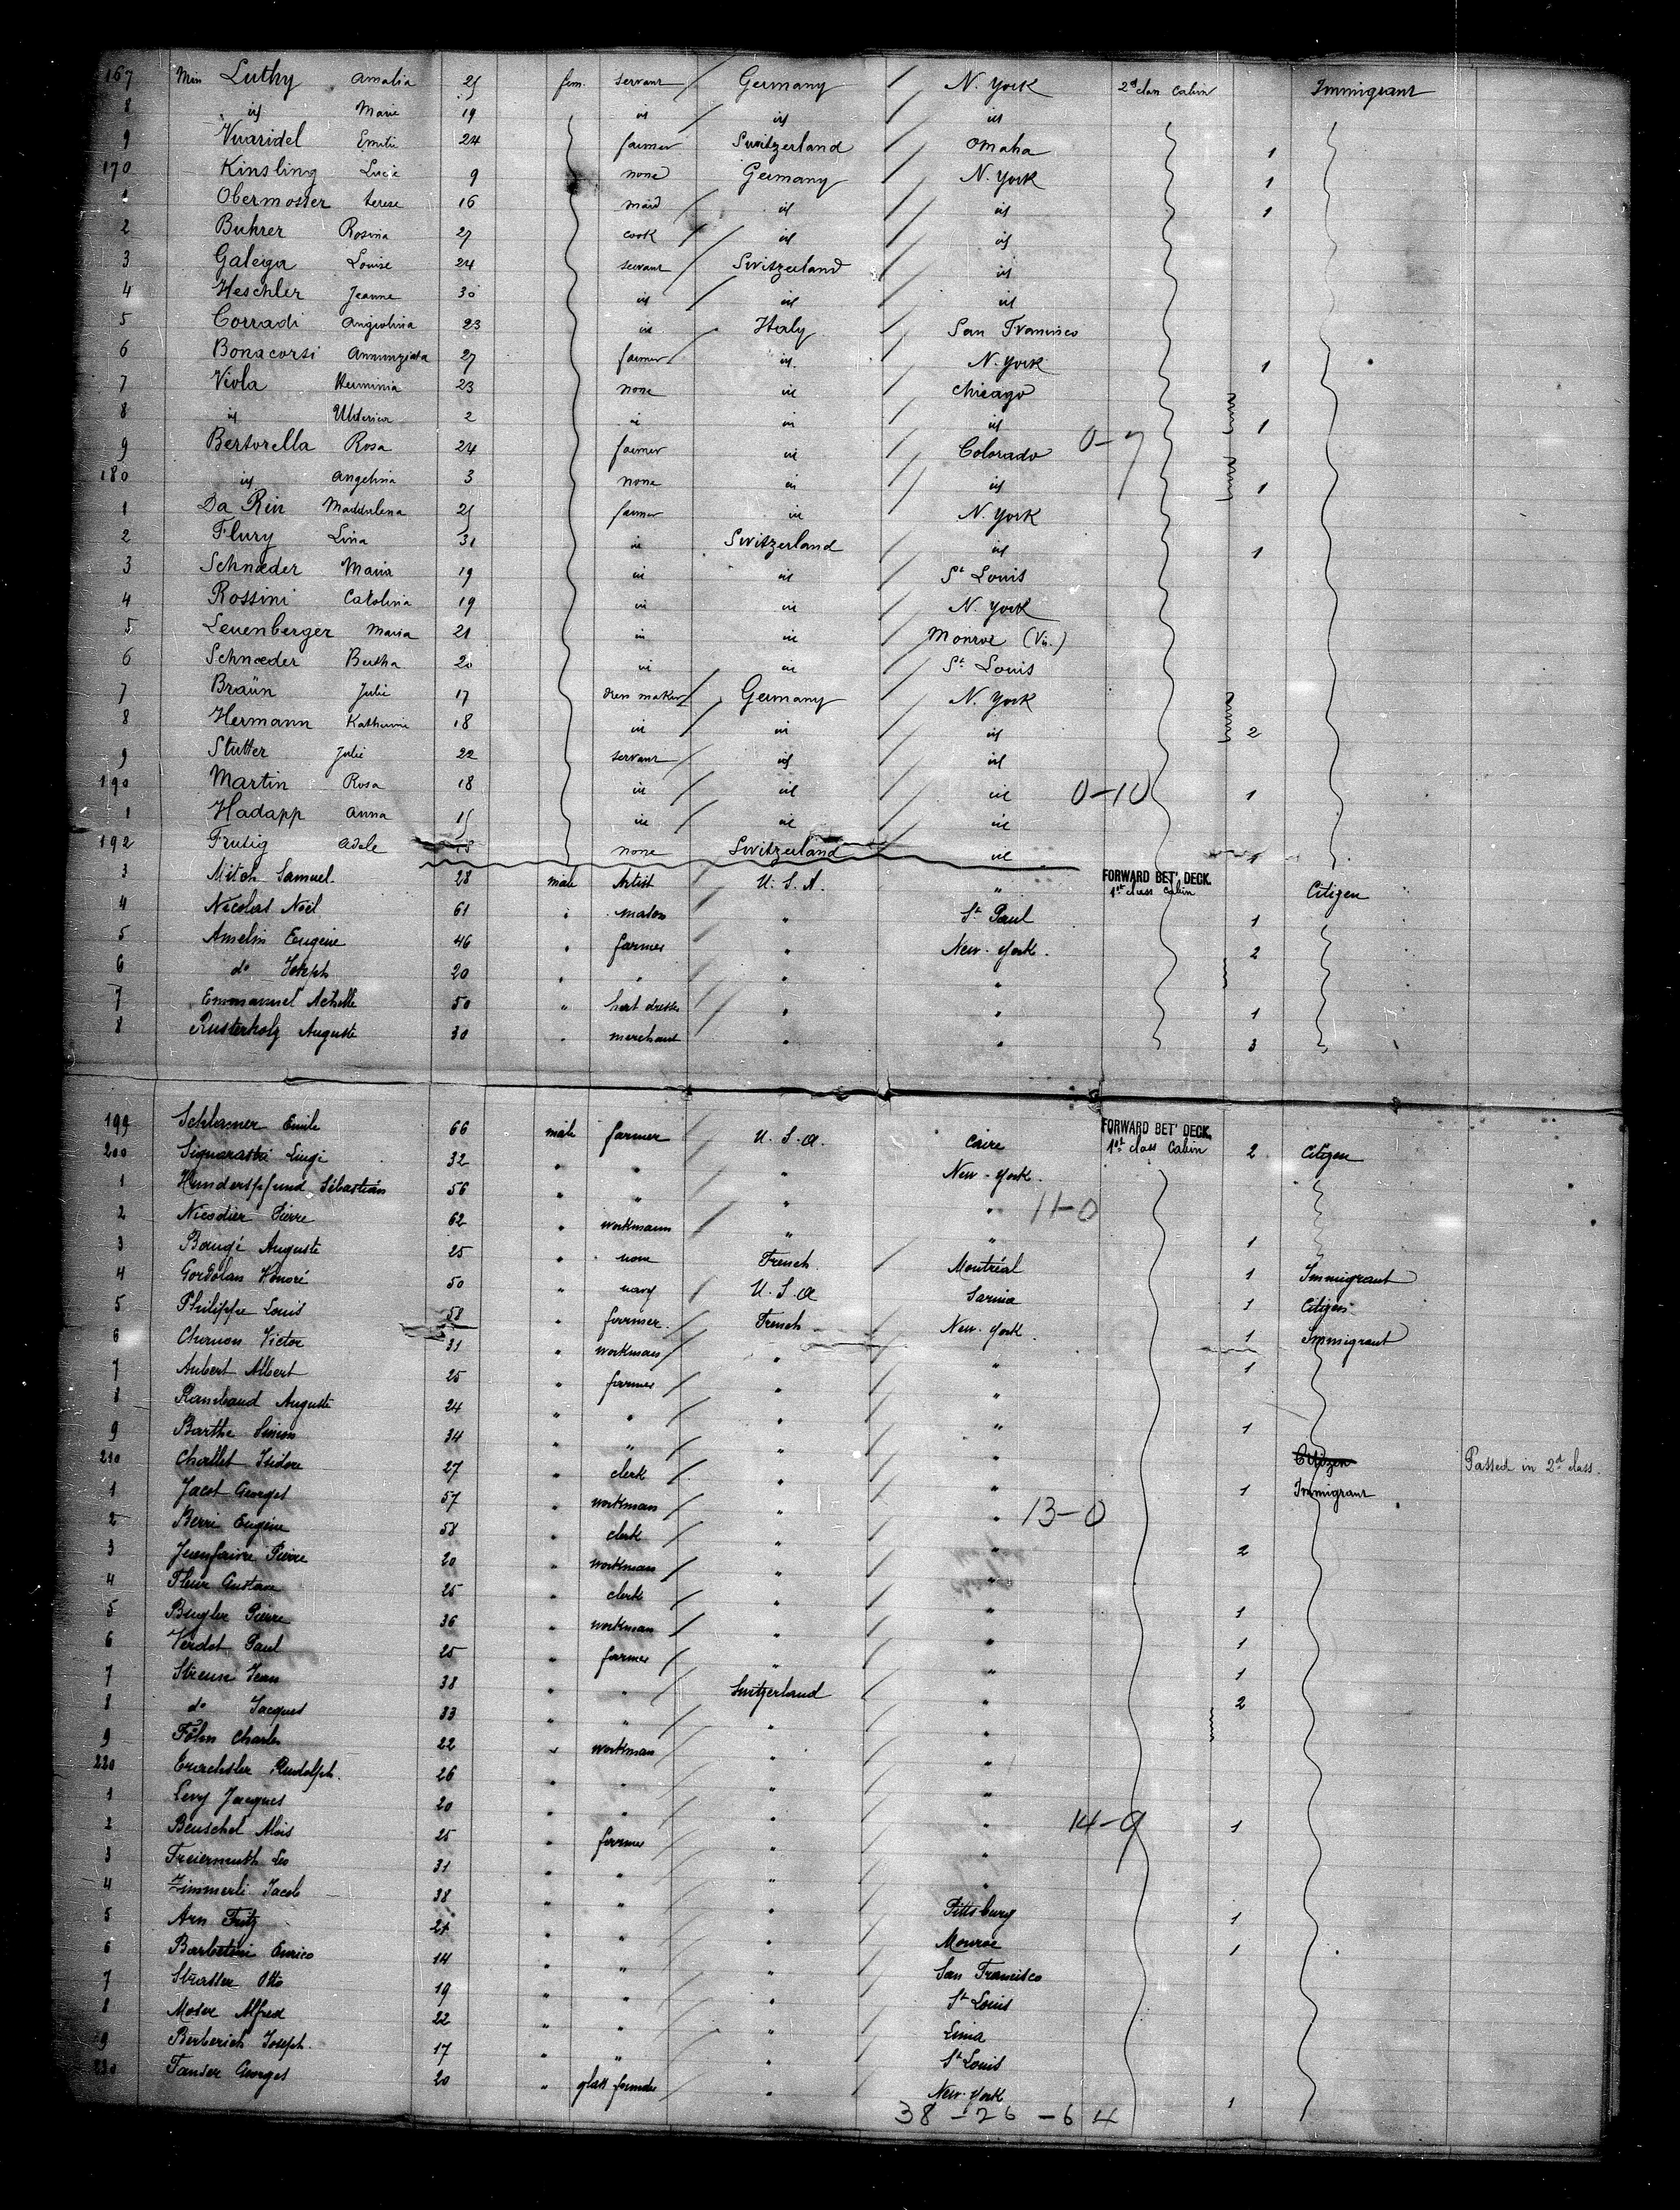 167 Miss Luthy Amalia 25 fem. servant Germany N. York 2d class Cabin Immigrant
8 id Marie 19 id id id
9 Vuaridel Emilie 24 farmer Switzerland Omaha 1
170 Kinsling Lucie 9 none Germany N. York 1
1 Obermosser terese 16 maid id id 1
2 Buhrer Rosina 27 cook id id
3 Galega Louise 24 servant Switzerland id
4 Heschler Jeanne 30 id id id
5 Corradi Angiolina 23 id Italy San Francisco
6 Bonacorsi Annunziata 27 farmer id N. York 1
7 Viola Herminia 23 none id Chicago
8 id 2 id id id 1
9 Bertorella Rosa 24 farmer id Colorado 0-7
180 id Angelina 3 none id id 1
1 Da Rin Maddalena 25 farmer id N. York
2 Flury Lina 31 id Switzerland id 1
3 Schnœder Maria 19 id id St Louis
4 Rossini Carolina 19 id id N. York
5 Leuenberger Maria 21 id id Monroe
6 Schnœder Bertha 20 id id St. Louis
7 Braün Julie 17 dress maker Germany N. York
8 Hermann Katherine 18 id id id 2
9 Stutter Julie 22 servant id id
190 Martin Rosa 18 id id id 0-10 1
1 Hadapp Anna 15 id id id
192 Frutig Adele none Switzerland id 1
3 Mitch Samuel 28 male Artist U. S. A. " FORWARD BET' DECK. 1st class Cabin Citizen
4 Nicolas Noël 61 " mason " St Paul 1
5 Amelin Eugène 46 " farmer " New-York. 2
6 do Joseph 20 " " " "
7 Emmanuel Achille 50 " " " 1
8 Rusterholz Auguste 30 " merchant " " 3
199 Schlamer Emile 66 male farmer U. S. A. Caire FORWARD BET' DECK. 1st class Cabin 2 Citizen
200 Luigi 32 " " " New-York.
1 Hunderspfund Sébastian 56 " " " " 11-0
2 Nicodier Pierre 62 " workmann " " 1
3 Baugé Auguste 25 " none French Montréal 1 Immigrant
4 Honoré 50 " navy U. S. A Sarnia 1 Citizen
5 Philippe Louis 58 " farmer French New-York. 1 Immigrant
6 Victor 31 " workman " " 1
7 Aubert Albert 25 " farmer " "
8 Rambaud Auguste 24 " " " " 1
9 Barthe Simon 34 " " " " Citizen Passed in 2d class.
210 Chollet Isidore 27 " clerk " " 1 Immigrant
1 Jacot Georges 57 " workman " " 13-0
2 Berri Eugène 58 " clerk " " 2
3 Pierre 20 " workman " "
4 Fleur Gustave 25 " clerk " " 1
5 Bugler Pierre 36 " workman " " 1
6 Verdot Paul 25 " farmer " " 1
7 Streun Jean 38 " " Switzerland " 2
8 do Jacques 33 " " " "
9 Föhn Charles 22 " workman " "
220 Rudolph. 26 " " " "
1 Levy Jacques 20 " " " " 14-9 1
2 Beuschel Alois 25 " farmer " "
3 Freiermuth Leo 31 " " " "
4 Zimmerli Jacob 38 " " " Pittsburg 1
5 Arn Fritz 21 " " " Monroe 1
6 Enrico 14 " " " San Francisco
7 Otto 19 " " " St Louis
8 Moser Alfred 22 " " " Lima
9 Berberich Joseph. 17 " " " St Louis
230 Tanser Georges 20 " glass founder " New-York 1
38-26-64